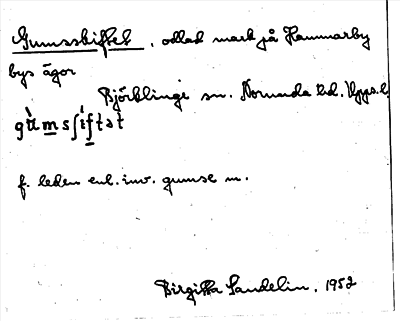 Gumsskiftet, odlad mark på Hammarby
bys ägor
Björklinge sn. Norunda hd. Upps. l.
gùmsʃiftət
f. leden enl. inv. gumse m.
Birgitta Sandelin. 1952